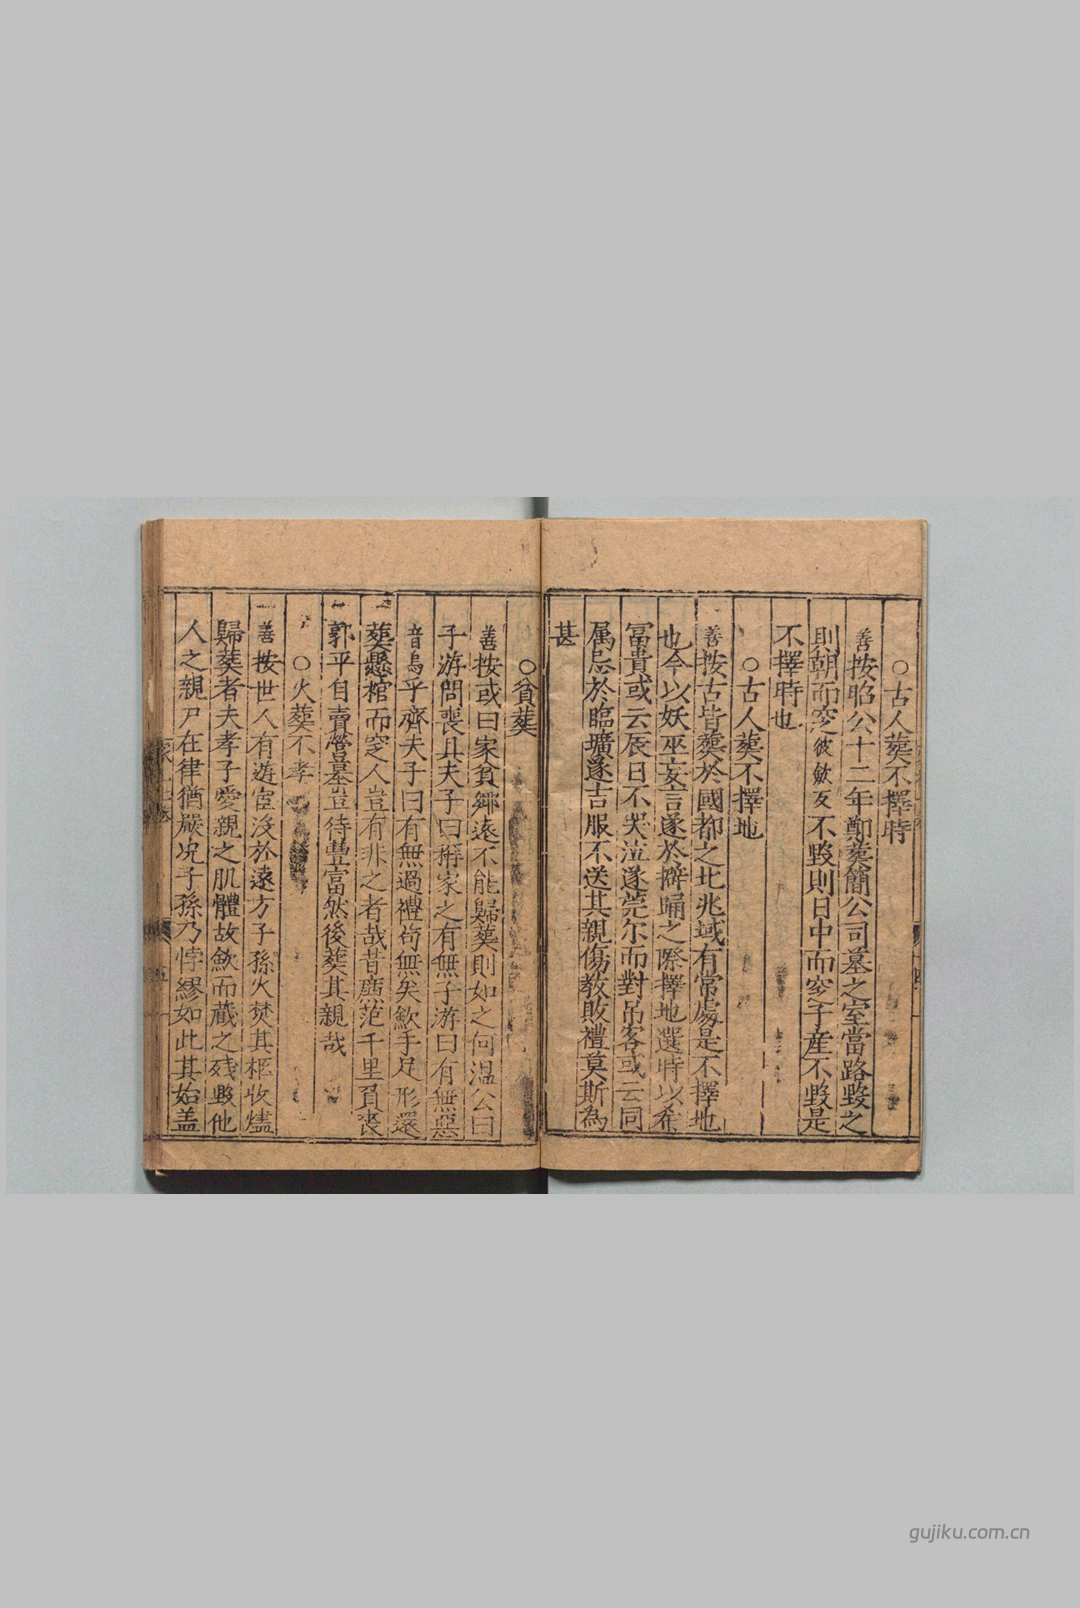 ○古人葬不擇時
善按昭公十二年鄭葬簡公司墓之室當路毀之
則朝而窆彼歛反不毀則日中而窆子産不毀是
不擇時也
○古人葬不擇地
善按古皆葬於國都之北兆域有常處是不擇地
也今以妖巫妄言遂於擗踊之際擇地選時以希
冨貴或云辰日不哭泣遂莞尔而對吊客或云同
属忌於臨壙遂吉服不送其親傷敎敗禮莫斯為
甚
○貧葬
善按或曰家貧鄉遠不能歸葬則如之何温公曰
子游問喪具夫子曰稱家之有無子游曰有無惡
音烏乎齊夫子曰有無過禮苟無矣歛手足形還
葬懸棺而窆人豈有非之者哉昔廉范千里負喪
郭平自賣營墓豈待豊富然後葬其親哉
○火葬不孝
善按世人有遊宦没於遠方子孫火焚其柩收燼
歸葬者夫孝子愛親之肌體故歛而藏之残毀他
人之親尸在律猶嚴况子孫乃悖繆如此其始盖
gujiku.com.cn